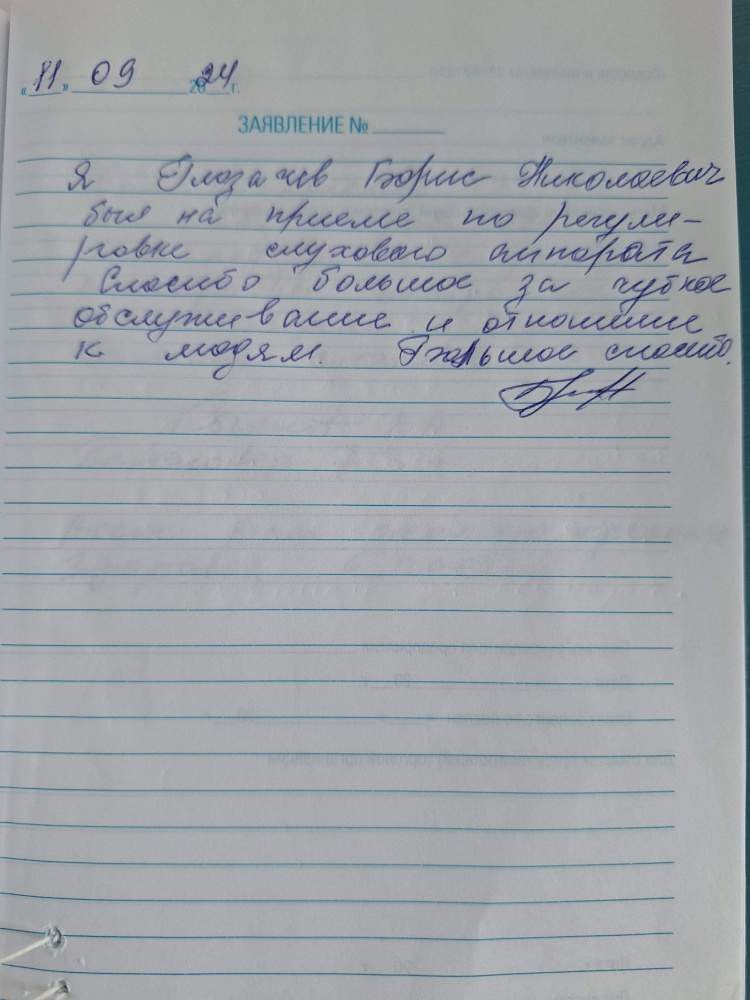 « 11 » 09 2024 г.
ЗАЯВЛЕНИЕ №
Я Глазачев Борис Николаевич
был на приеме по регули-
ровке слухового аппарата
Спасибо большое за чуткое
обслуживание и отношение
к людям. Большое спасибо.